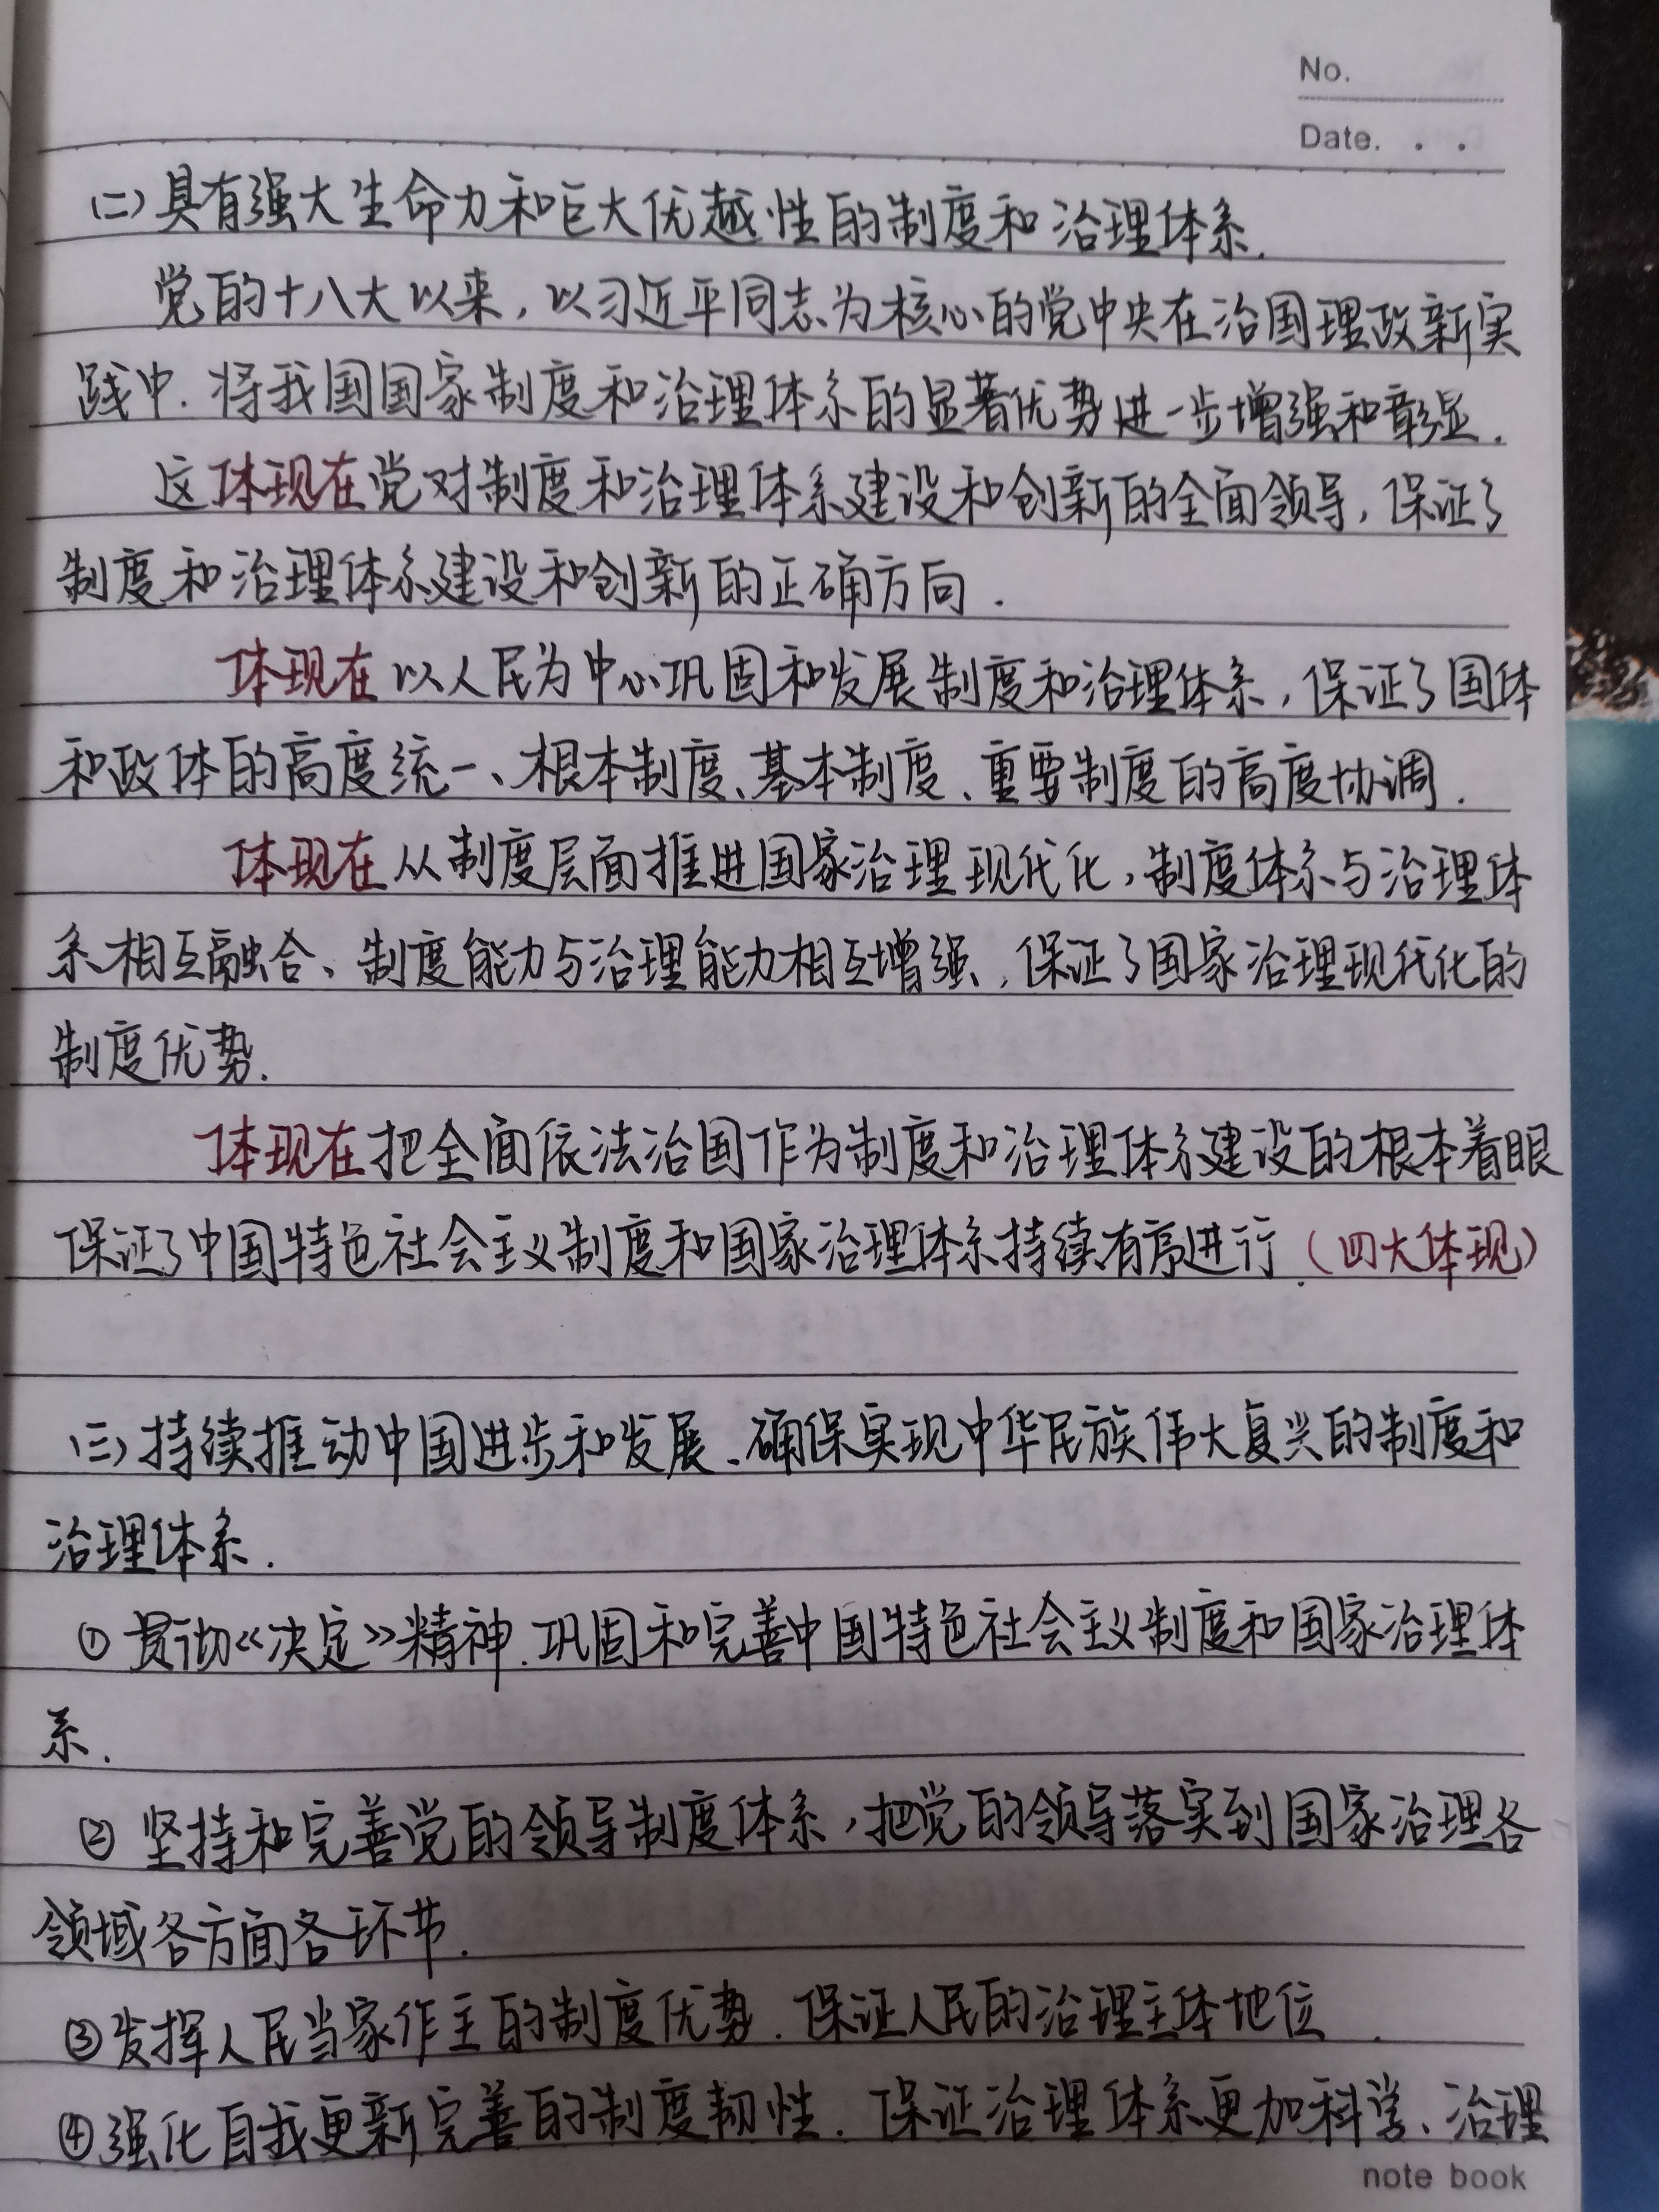 No.
Date. . .
(二)具有强大生命力和巨大优越性的制度和治理体系.
党的十八大以来,以习近平同志为核心的党中央在治国理政新实
践中.将我国国家制度和治理体系的显著优势进一步增强和彰显.
这体现在党对制度和治理体系建设和创新的全面领导,保证了
制度和治理体系建设和创新的正确方向.
体现在以人民为中心巩固和发展制度和治理体系,保证了国体
和政体的高度统一、根本制度、基本制度、重要制度的高度协调.
体现在从制度层面推进国家治理现代化,制度体系与治理体
系相互融合、制度能力与治理能力相互增强,保证了国家治理现代化的
制度优势.
体现在把全面依法治国作为制度和治理体系建设的根本着眼
保证了中国特色社会主义制度和国家治理体系持续有序进行.(四大体现)
(三)持续推动中国进步和发展、确保实现中华民族伟大复兴的制度和
治理体系.
①贯彻《决定》精神.巩固和完善中国特色社会主义制度和国家治理体
系.
②坚持和完善党的领导制度体系,把党的领导落实到国家治理各
领域各方面各环节.
③发挥人民当家作主的制度优势.保证人民的治理主体地位.
④强化自我更新完善的制度韧性.保证治理体系更加科学、治理
note book